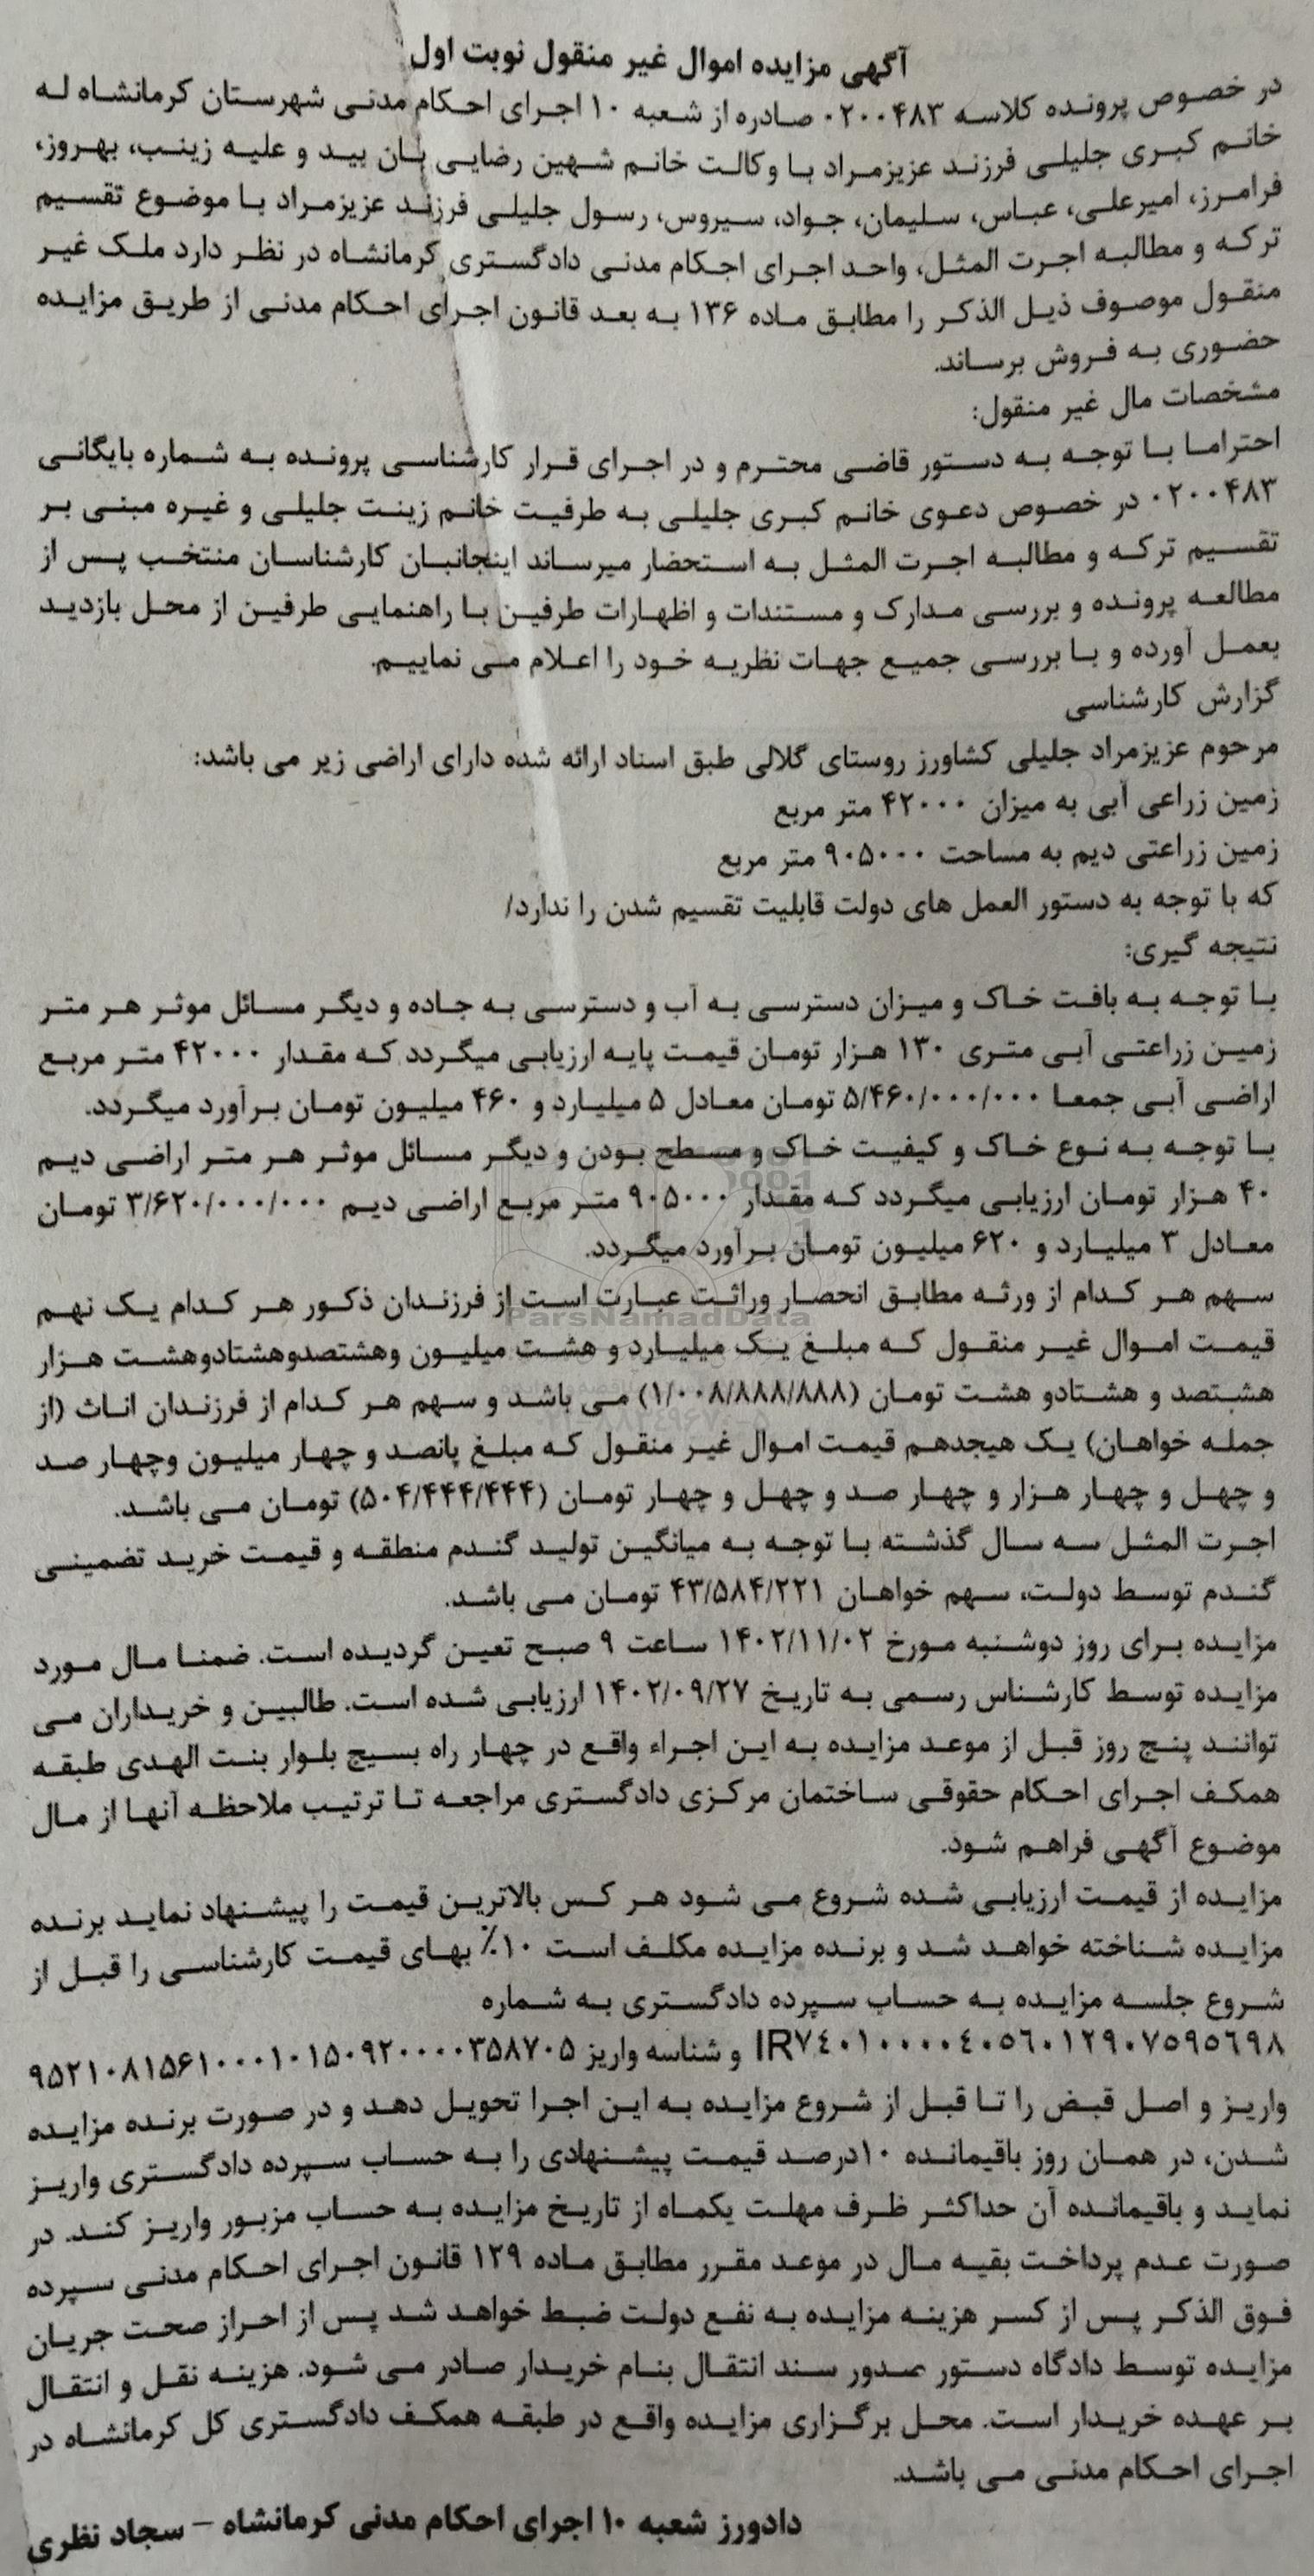 آگهی مزایده اموال غیر منقول نوبت اول
در خصوص پرونده کلاسه ۰۲۰۰۴۸۳ صادره از شعبه ۱۰ اجرای احکام مدنی شهرستان کرمانشاه له
خانم کبری جلیلی فرزند عزیزمراد با وکالت خانم شهین رضایی بان بید و علیه زینب، بهروز،
فرامرز، امیرعلی، عباس، سلیمان، جواد، سیروس، رسول جلیلی فرزند عزیزمراد با موضوع تقسیم
ترکه و مطالبه اجرت المثل، واحد اجرای اجکام مدنی دادگستری کرمانشاه در نظر دارد ملک غیر
منقول موصوف ذیل الذکر را مطابق ماده ۱۳۶ به بعد قانون اجرای احکام مدنی از طریق مزایده
حضوری به فروش برساند.
مشخصات مال غیر منقول:
احتراما با توجه به دستور قاضی محترم و در اجرای قرار کارشناسی پرونده به شماره بایگانی
۰۲۰۰۴۸۳ در خصوص دعوی خانم کبری جلیلی به طرفیت خانم زینت جلیلی و غیره مبنی بر
تقسیم ترکه و مطالبه اجرت المثل به استحضار میرساند اینجانبان کارشناسان منتخب پس از
مطالعه پرونده و بررسی مدارک و مستندات و اظهارات طرفین با راهنمایی طرفین از محل بازدید
بعمل آورده و با بررسی جمیع جهات نظریه خود را اعلام می نماییم.
گزارش کارشناسی
مرحوم عزیزمراد جلیلی کشاورز روستای گلالی طبق اسناد ارائه شده دارای اراضی زیر می باشد:
زمین زراعی آبی به میزان ۴۲۰۰۰ متر مربع
زمین زراعتی دیم به مساحت ۹۰۵۰۰۰ متر مربع
که با توجه به دستور العمل های دولت قابلیت تقسیم شدن را ندارد/
نتیجه گیری:
با توجه به بافت خاک و میزان دسترسی به آب و دسترسی به جاده و دیگر مسائل موثر هر متر
زمین زراعتی آبی متری ۱۳۰ هزار تومان قیمت پایه ارزیابی میگردد که مقدار ۴۲۰۰۰ متر مربع
اراضی آبی جمعا ۵/۴۶۰/۰۰۰/۰۰۰ تومان معادل ۵ میلیارد و ۴۶۰ میلیون تومان برآورد میگردد.
با توجه به نوع خاک و کیفیت خاک و مسطح بودن و دیگر مسائل موثر هر متر اراضی دیم
۴۰ هزار تومان ارزیابی میگردد که مقدار ۹۰۵۰۰۰ متر مربع اراضی دیم ۳/۶۲۰/۰۰۰/۰۰۰ تومان
معادل ۳ میلیارد و ۶۲۰ میلیون تومان برآورد میگردد.
سهم هر کدام از ورثه مطابق انحصار وراثت عبارت است از فرزندان ذکور هر کدام یک نهم
قیمت اموال غیر منقول که مبلغ یک میلیارد و هشت میلیون وهشتصدوهشتادوهشت هزار
هشتصد و هشتادو هشت تومان (۱/۰۰۸/۸۸۸/۸۸۸) می باشد و سهم هر کدام از فرزندان اناث (از
جمله خواهان) یک هیجدهم قیمت اموال غیر منقول که مبلغ پانصد و چهار میلیون وچهار صد
و چهل و چهار هزار و چهار صد و چهل و چهار تومان (۵۰۴/۴۴۴/۴۴۴) تومان می باشد.
اجرت المثل سه سال گذشته با توجه به میانگین تولید گندم منطقه و قیمت خرید تضمینی
گندم توسط دولت، سهم خواهان ۴۳/۵۸۴/۲۲۱ تومان می باشد.
مزایده برای روز دوشنبه مورخ ۱۴۰۲/۱۱/۰۲ ساعت ۹ صبح تعین گردیده است. ضمنا مال مورد
مزایده توسط کارشناس رسمی به تاریخ ۱۴۰۲/۰۹/۲۷ ارزیابی شده است. طالبین و خریداران می
توانند پنج روز قبل از موعد مزایده به این اجراء واقع در چهار راه بسیج بلوار بنت الهدی طبقه
همکف اجرای احکام حقوقی ساختمان مرکزی دادگستری مراجعه تا ترتیب ملاحظه آنها از مال
موضوع آگهی فراهم شود.
مزایده از قیمت ارزیابی شده شروع می شود هر کس بالاترین قیمت را پیشنهاد نماید برنده
مزایده شناخته خواهد شد و برنده مزایده مکلف است ۱۰٪ بهای قیمت کارشناسی را قبل از
شروع جلسه مزایده به حساب سپرده دادگستری به شماره
IR۷٤۰۱۰۰۰۰٤۰٥٦۰۱۲۹۰۷٥۹٥٦۹۸ و شناسه واریز ۹۵۲۱۰۸۱۵۶۱۰۰۰۱۰۱۵۰۹۲۰۰۰۰۳۵۸۷۰۵
واریز و اصل قبض را تا قبل از شروع مزایده به این اجرا تحویل دهد و در صورت برنده مزایده
شدن، در همان روز باقیمانده ۱۰درصد قیمت پیشنهادی را به حساب سپرده دادگستری واریز
نماید و باقیمانده آن حداکثر ظرف مهلت یکماه از تاریخ مزایده به حساب مزبور واریز کند. در
صورت عدم پرداخت بقیه مال در موعد مقرر مطابق ماده ۱۲۹ قانون اجرای احکام مدنی سپرده
فوق الذکر پس از کسر هزینه مزایده به نفع دولت ضبط خواهد شد پس از احراز صحت جریان
مزایده توسط دادگاه دستور صدور سند انتقال بنام خریدار صادر می شود. هزینه نقل و انتقال
بر عهده خریدار است. محل برگزاری مزایده واقع در طبقه همکف دادگستری کل کرمانشاه در
اجرای احکام مدنی می باشد.
دادورز شعبه ۱۰ اجرای احکام مدنی کرمانشاه – سجاد نظری
ParsNamadData